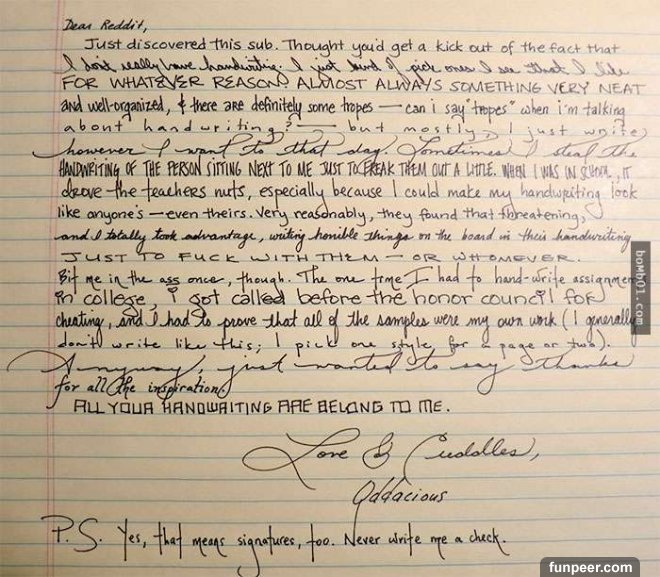 Dear Reddit,
Just discovered this sub. Thought you'd get a kick out of the fact that
I don't really have handwriting. I just kind of pick ones I see that I like
FOR WHATEVER REASON. ALMOST ALWAYS SOMETHING VERY NEAT
and well-organized, & there are definitely some tropes — can i say "tropes" when i'm talking
about handwriting? — but mostly, I just write
however I want to that day. Sometimes I steal the
HANDWRITING OF THE PERSON SITTING NEXT TO ME JUST TO FREAK THEM OUT A LITTLE. WHEN I WAS IN SCHOOL, IT
drove the teachers nuts, especially because I could make my handwriting look
like anyone's — even theirs. Very reasonably, they found that threatening,
and I totally took advantage, writing horrible things on the board in their handwriting
JUST TO FUCK WITH THEM — OR WHOMEVER.
Bit me in the ass once, though. The one time I had to hand-write assignmen
in college, i got called before the honor council for
cheating, and I had to prove that all of the samples were my own work (I generally
don't write like this; I pick one style for a page or two).
Anyway, just wanted to say thanks
for all the inspiration
ALL YOUR HANDWRITING ARE BELONG TO ME.
Love & Cuddles,
Oddacious
P.S. Yes, that means signatures, too. Never write me a check.
bomb01.com
funpeer.com